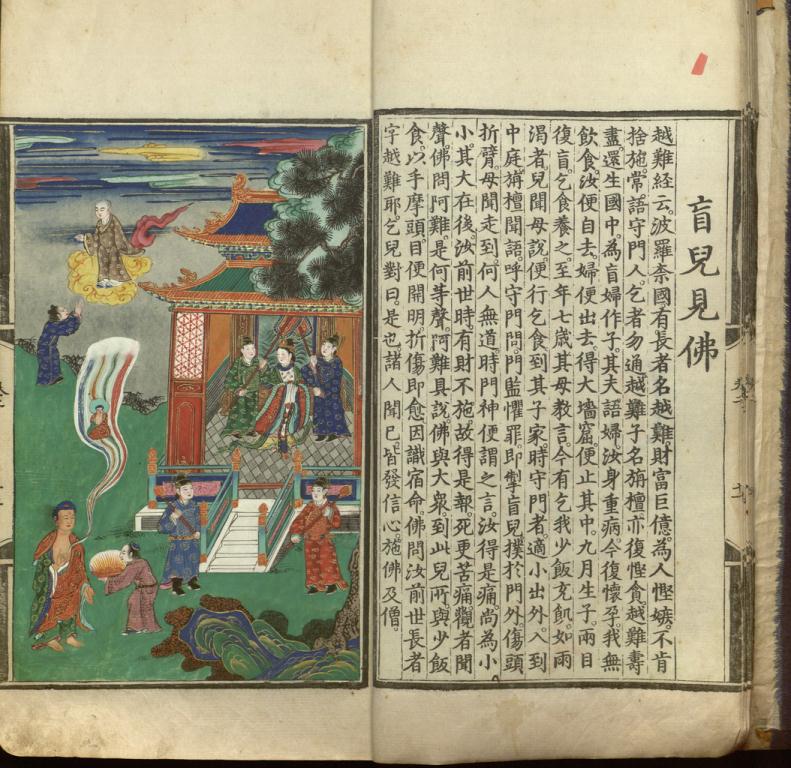 盲兒見佛
越難經云。波羅奈國。有長者名越難。財富巨億。為人慳嫉。不肯
捨施。常語守門人。乞者勿通。越難子名旃檀。亦復慳貪。越難壽
盡。還生國中。為盲婦作子。其夫語婦。汝身重病。今復懷孕。我無
飲食。汝便自去。婦便出去。得大墻窟。便止其中。九月生子。兩目
復盲。乞食養之。至年七歲。其母教言。今有乞我少飯充飢。如雨
渴者。兒聞母說。便行乞食。到其子家。時守門者。適小出外。入到
中庭。旃檀聞語。呼守門問。門監懼罪。即掣盲兒。撲於門外。傷頭
折臂。母聞走到。何人無道。時門神便謂之言。汝得是痛。尚為小
小。其大在後。汝前世時。有財不施。故得是報。死更苦痛。觀者聞
聲。佛問阿難。是何等聲。阿難具說。佛與大眾。到此兒所。與少飯
食。以手摩頭。目便開明。折傷即愈。因識宿命。佛問汝前世長者
字越難耶。乞兒對曰。是也。諸人聞已。皆發信心。施佛及僧。